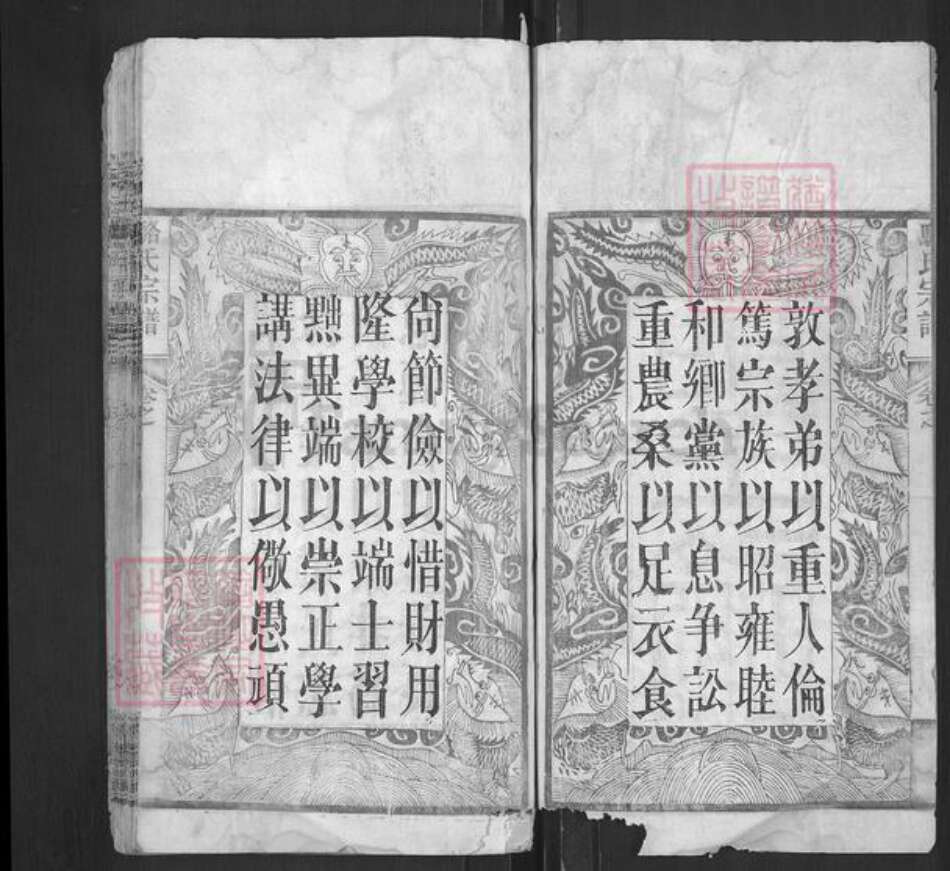 敦孝弟以重人倫
篤宗族以昭雍睦
和鄉黨以息爭訟
重農桑以足衣食
尙節儉以惜財用
隆學校以端士習
黜異端以崇正學
講法律以儆愚頑
氏宗譜
氏宗譜